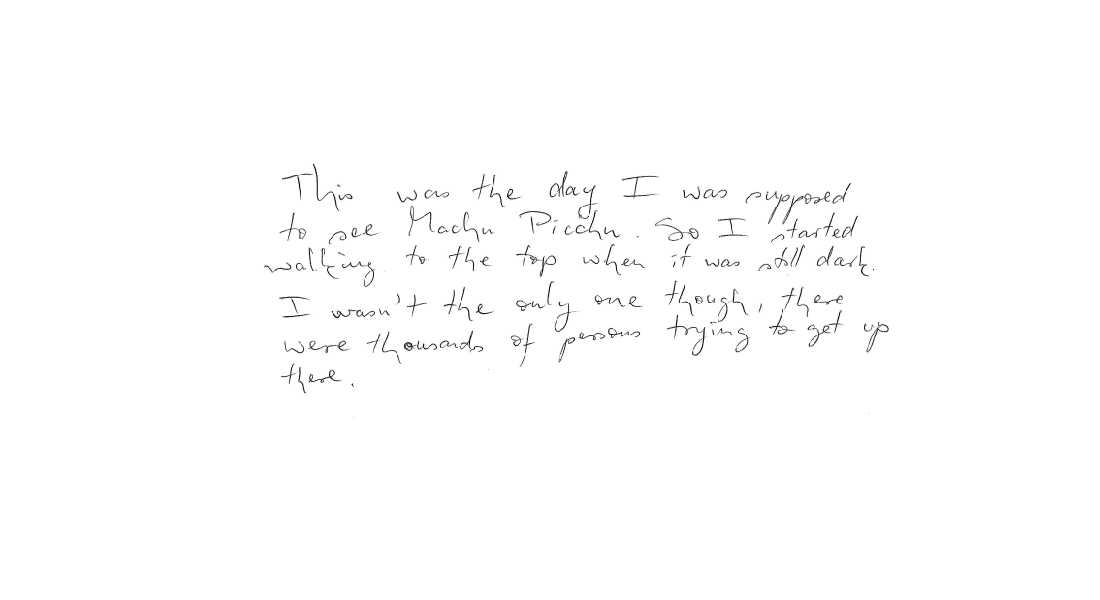 This was the day I was supposed
to see Machu Picchu. So I started
walking to the top when it was still dark.
I wasn't the only one though, there
were thousands of persons trying to get up
there.